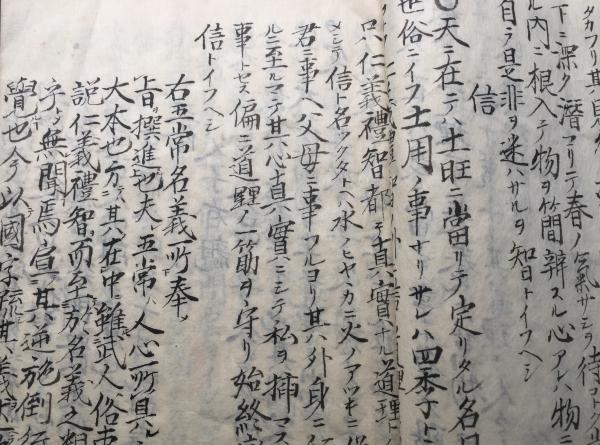 下ニ深ク潜マリテ春ノ氣サシヲ待
ル内ニ根入テ物ヲ簡辨スル心アレハ物
自ラ是非ヲ迷ハサルヲ知トイフヘシ
信
〇天ニ在テハ土旺ニ當リテ定リタル名
世俗ニイフ土用ノ事ナリサレハ四季ト
只仁義禮智都テ真實ナル道理ト
信ト名ツクタトヘハ水ノヒヤヽカニ火ノアツキニ
君ニ事ヘ父母ニ事フルヨリ其外身ニ
ルニ至ルマテ其心真實ニシテ私ヲ挿マス
事トセス偏ニ道理ノ一筋ヲ守リ始終
信トイフヘシ
右五常名義所奉
旨撰進也夫五常ハ人心所具
大本也而其在中雖武人俗
説仁義禮智而至於名義之
乎無聞焉宜其逆施倒行
覺也今以國字疏其義